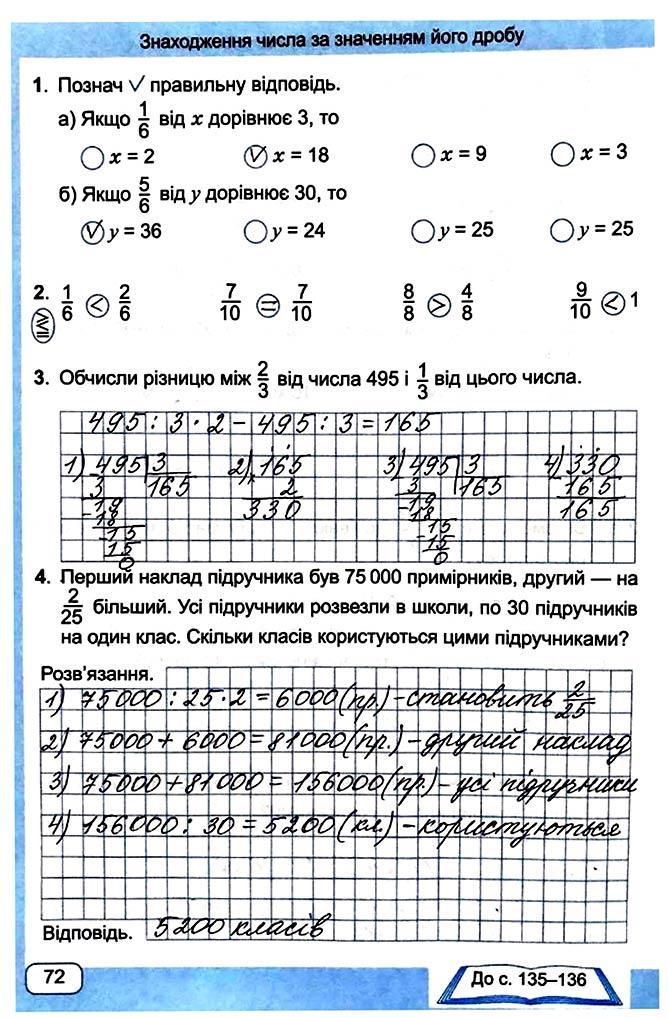 Знаходження числа за значенням його дробу
1. Познач √ правильну відповідь.
а) Якщо 1/6 від x дорівнює 3, то
x = 2 √ x = 18 x = 9 x = 3
б) Якщо 5/6 від y дорівнює 30, то
√ y = 36 y = 24 y = 25 y = 25
2. 1/6 < 2/6 7/10 = 7/10 8/8 > 4/8 9/10 < 1
3. Обчисли різницю між 2/3 від числа 495 і 1/3 від цього числа.
495 : 3 · 2 − 495 : 3 = 165
1) 495 3 2) 165 3) 495 3 4) 330
3 165 2 3 165 165
-19 330 -19 165
18 18
-15 -15
15 15
0 0
4. Перший наклад підручника був 75 000 примірників, другий — на
2/25 більший. Усі підручники розвезли в школи, по 30 підручників
на один клас. Скільки класів користуються цими підручниками?
Розв'язання.
1) 75000 : 25 · 2 = 6000 (пр.) - становить 2/25
2) 75000 + 6000 = 81000 (пр.) - другий наклад
3) 75000 + 81000 = 156000 (пр.) - усі підручники
4) 156000 : 30 = 5200 (кл.) - користуються
Відповідь. 5200 класів
72
До с. 135–136